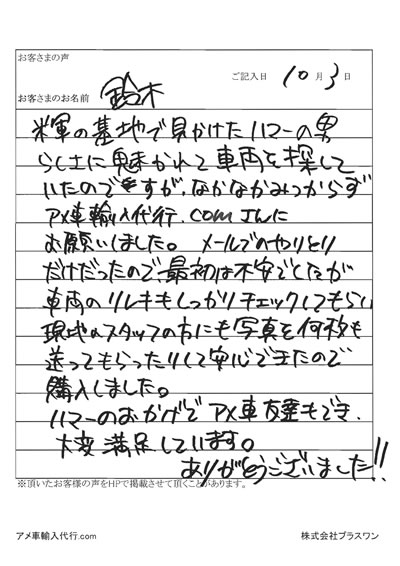 お客さまの声
ご記入日 10月3日
お客さまのお名前 鈴木
米軍の基地で見かけたハマーの男
らしさに魅かれて車両を探して
いたのですが、なかなかみつからず
アメ車輸入代行.comさんに
お願いしました。メールでのやりとり
だけだったので最初は不安でしたが
車両のリレキもしっかりチェックしてもらい
現地のスタッフの方にも写真を何枚も
送ってもらったりして安心できたので
購入しました。
ハマーのおかげでアメ車友達もでき、
大変満足しています。
ありがとうございました!!
※頂いたお客様の声をHPで掲載させて頂くことがあります。
アメ車輸入代行.com
株式会社プラスワン